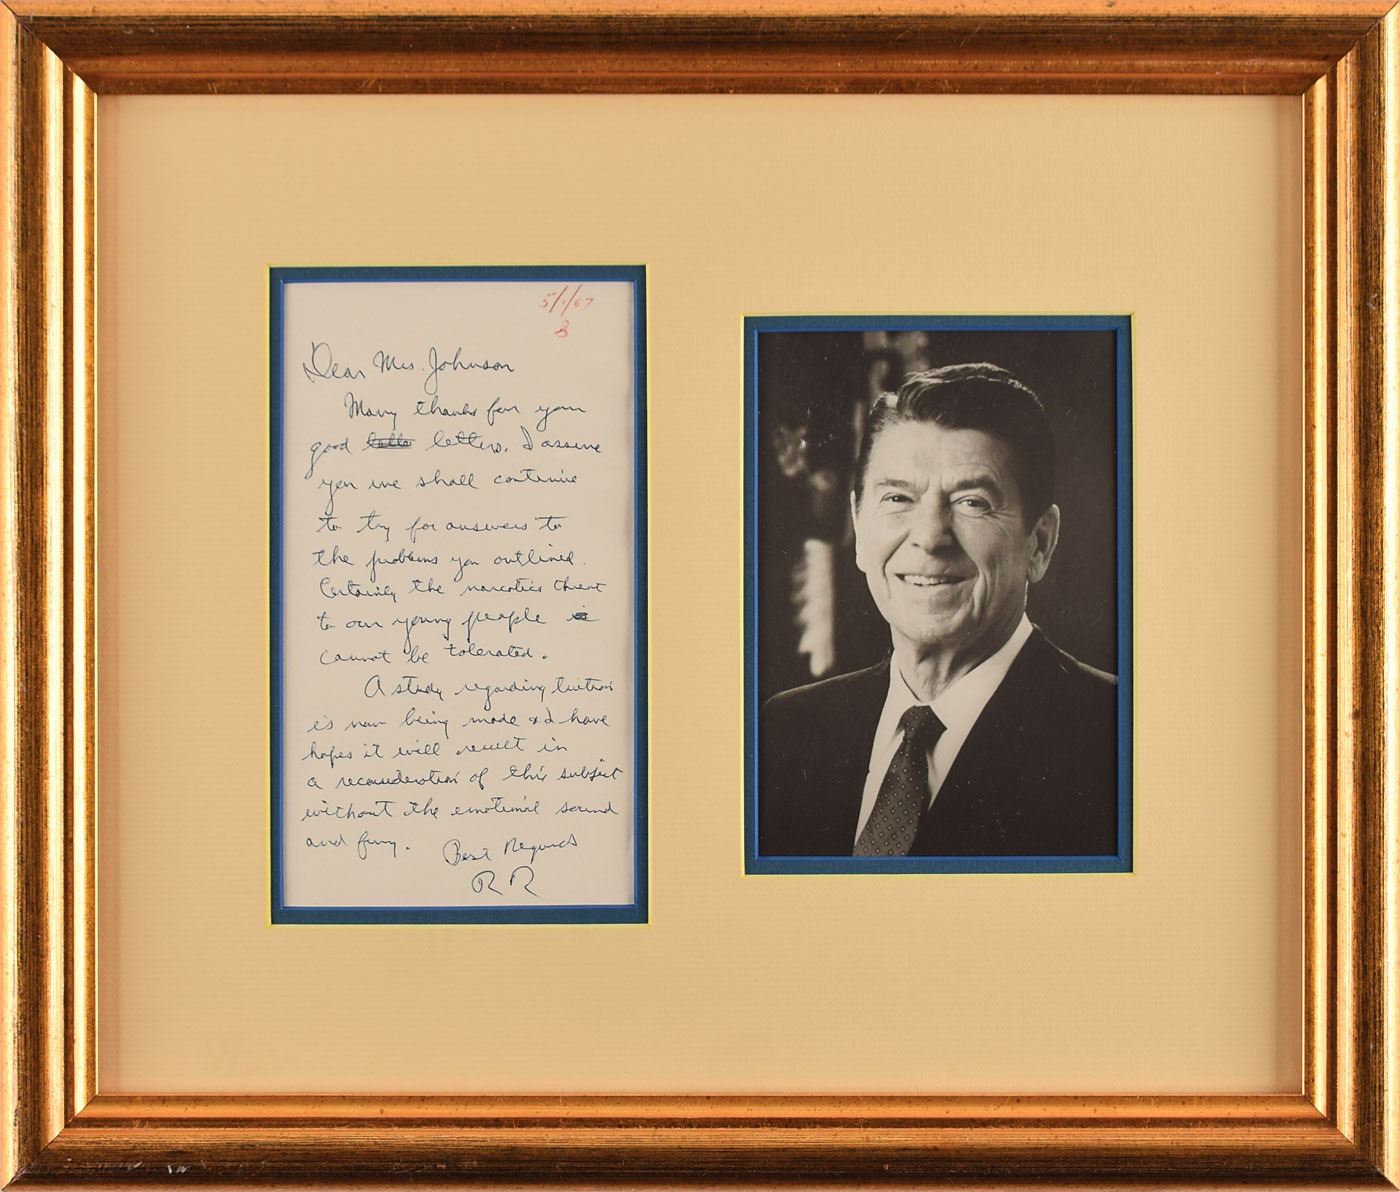 5/1/67
B
Dear Mrs. Johnson
Many thanks for your
good letters. I assure
you we shall continue
to try for answers to
the problems you outlined.
Certainly the narcotics threat
to our young people is
cannot be tolerated.
A study regarding tuition
is now being made & I have
hopes it will result in
a reconsideration of this subject
without the emotional sound
and fury. Best Regards
RR